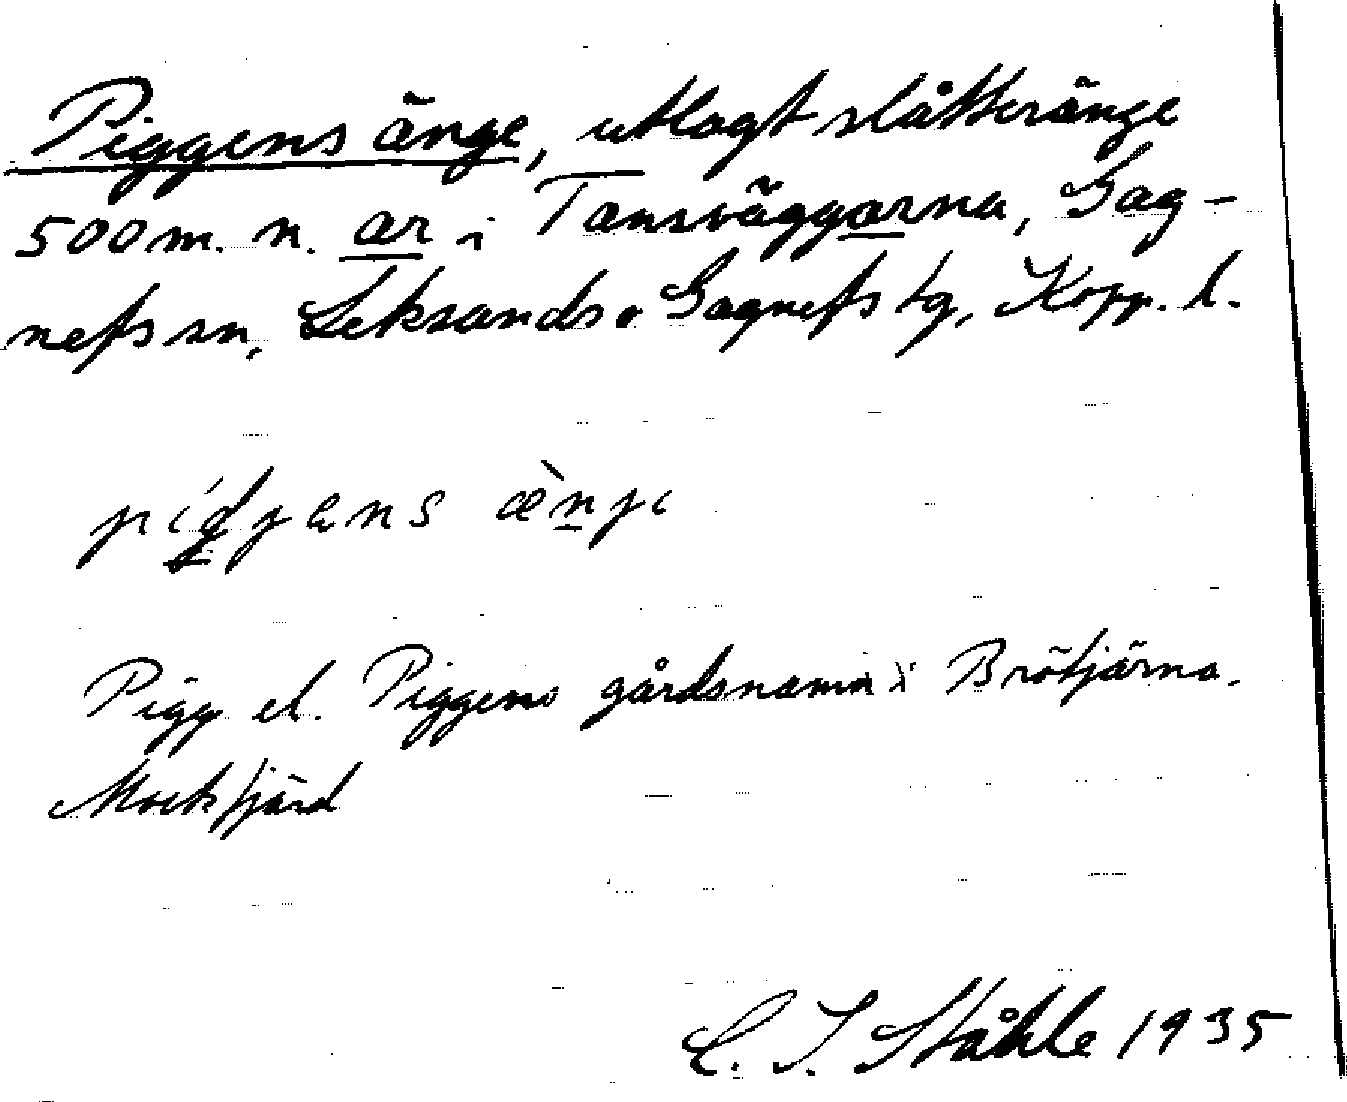 Piggens änge, utlagt slåtteränge
500 m. n. ar i Tansväggarna, Gag-
nefs sn, Leksands o Gagnefs tg, Kopp. l.
Pigg el. Piggens gårdsnamn i Brötjärna.
Mockfjärd
C. I. Ståhle 1935